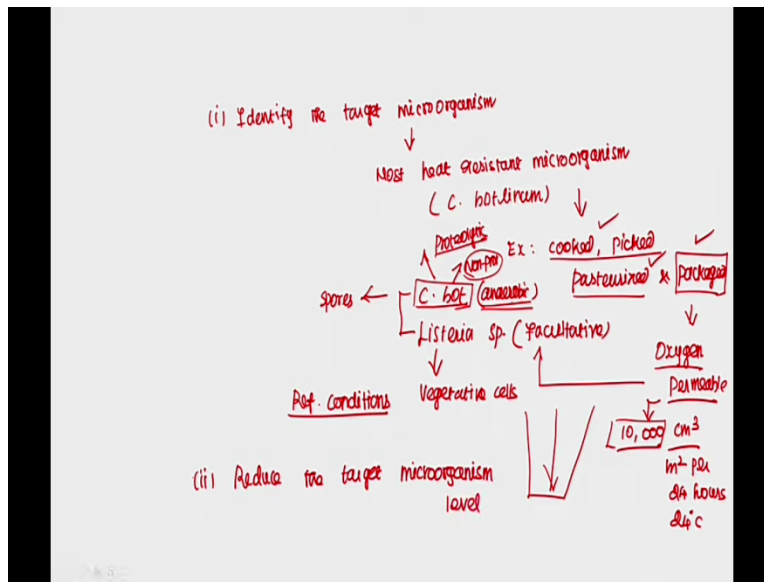 (i) Identify the target microorganism
Most heat resistant microorganism
(C. botlinum)
Proteolytic
Ex: cooked, picked
Non-pro
pasteurized & packaged
spores ← C. bot (anaerobic)
Listeria sp. (facultative)
Oxygen
Permeable
Ref. conditions Vegetative cells
10,000 cm³
m² per
24 hours
24°C
(ii) Reduce the target microorganism
level